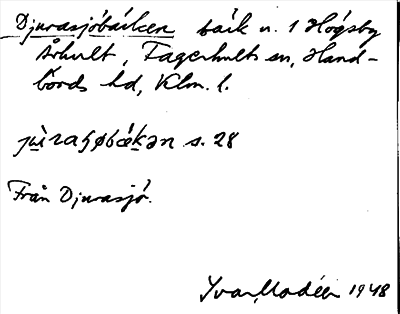 Djurasjöbäcken bäck n. 1 Högsby
Århult, Fagerhults sn, Hand-
börds hd, Klm. l.
jùraʃøbækən s. 28
Från Djurasjö.
Yvar Modéer 1948